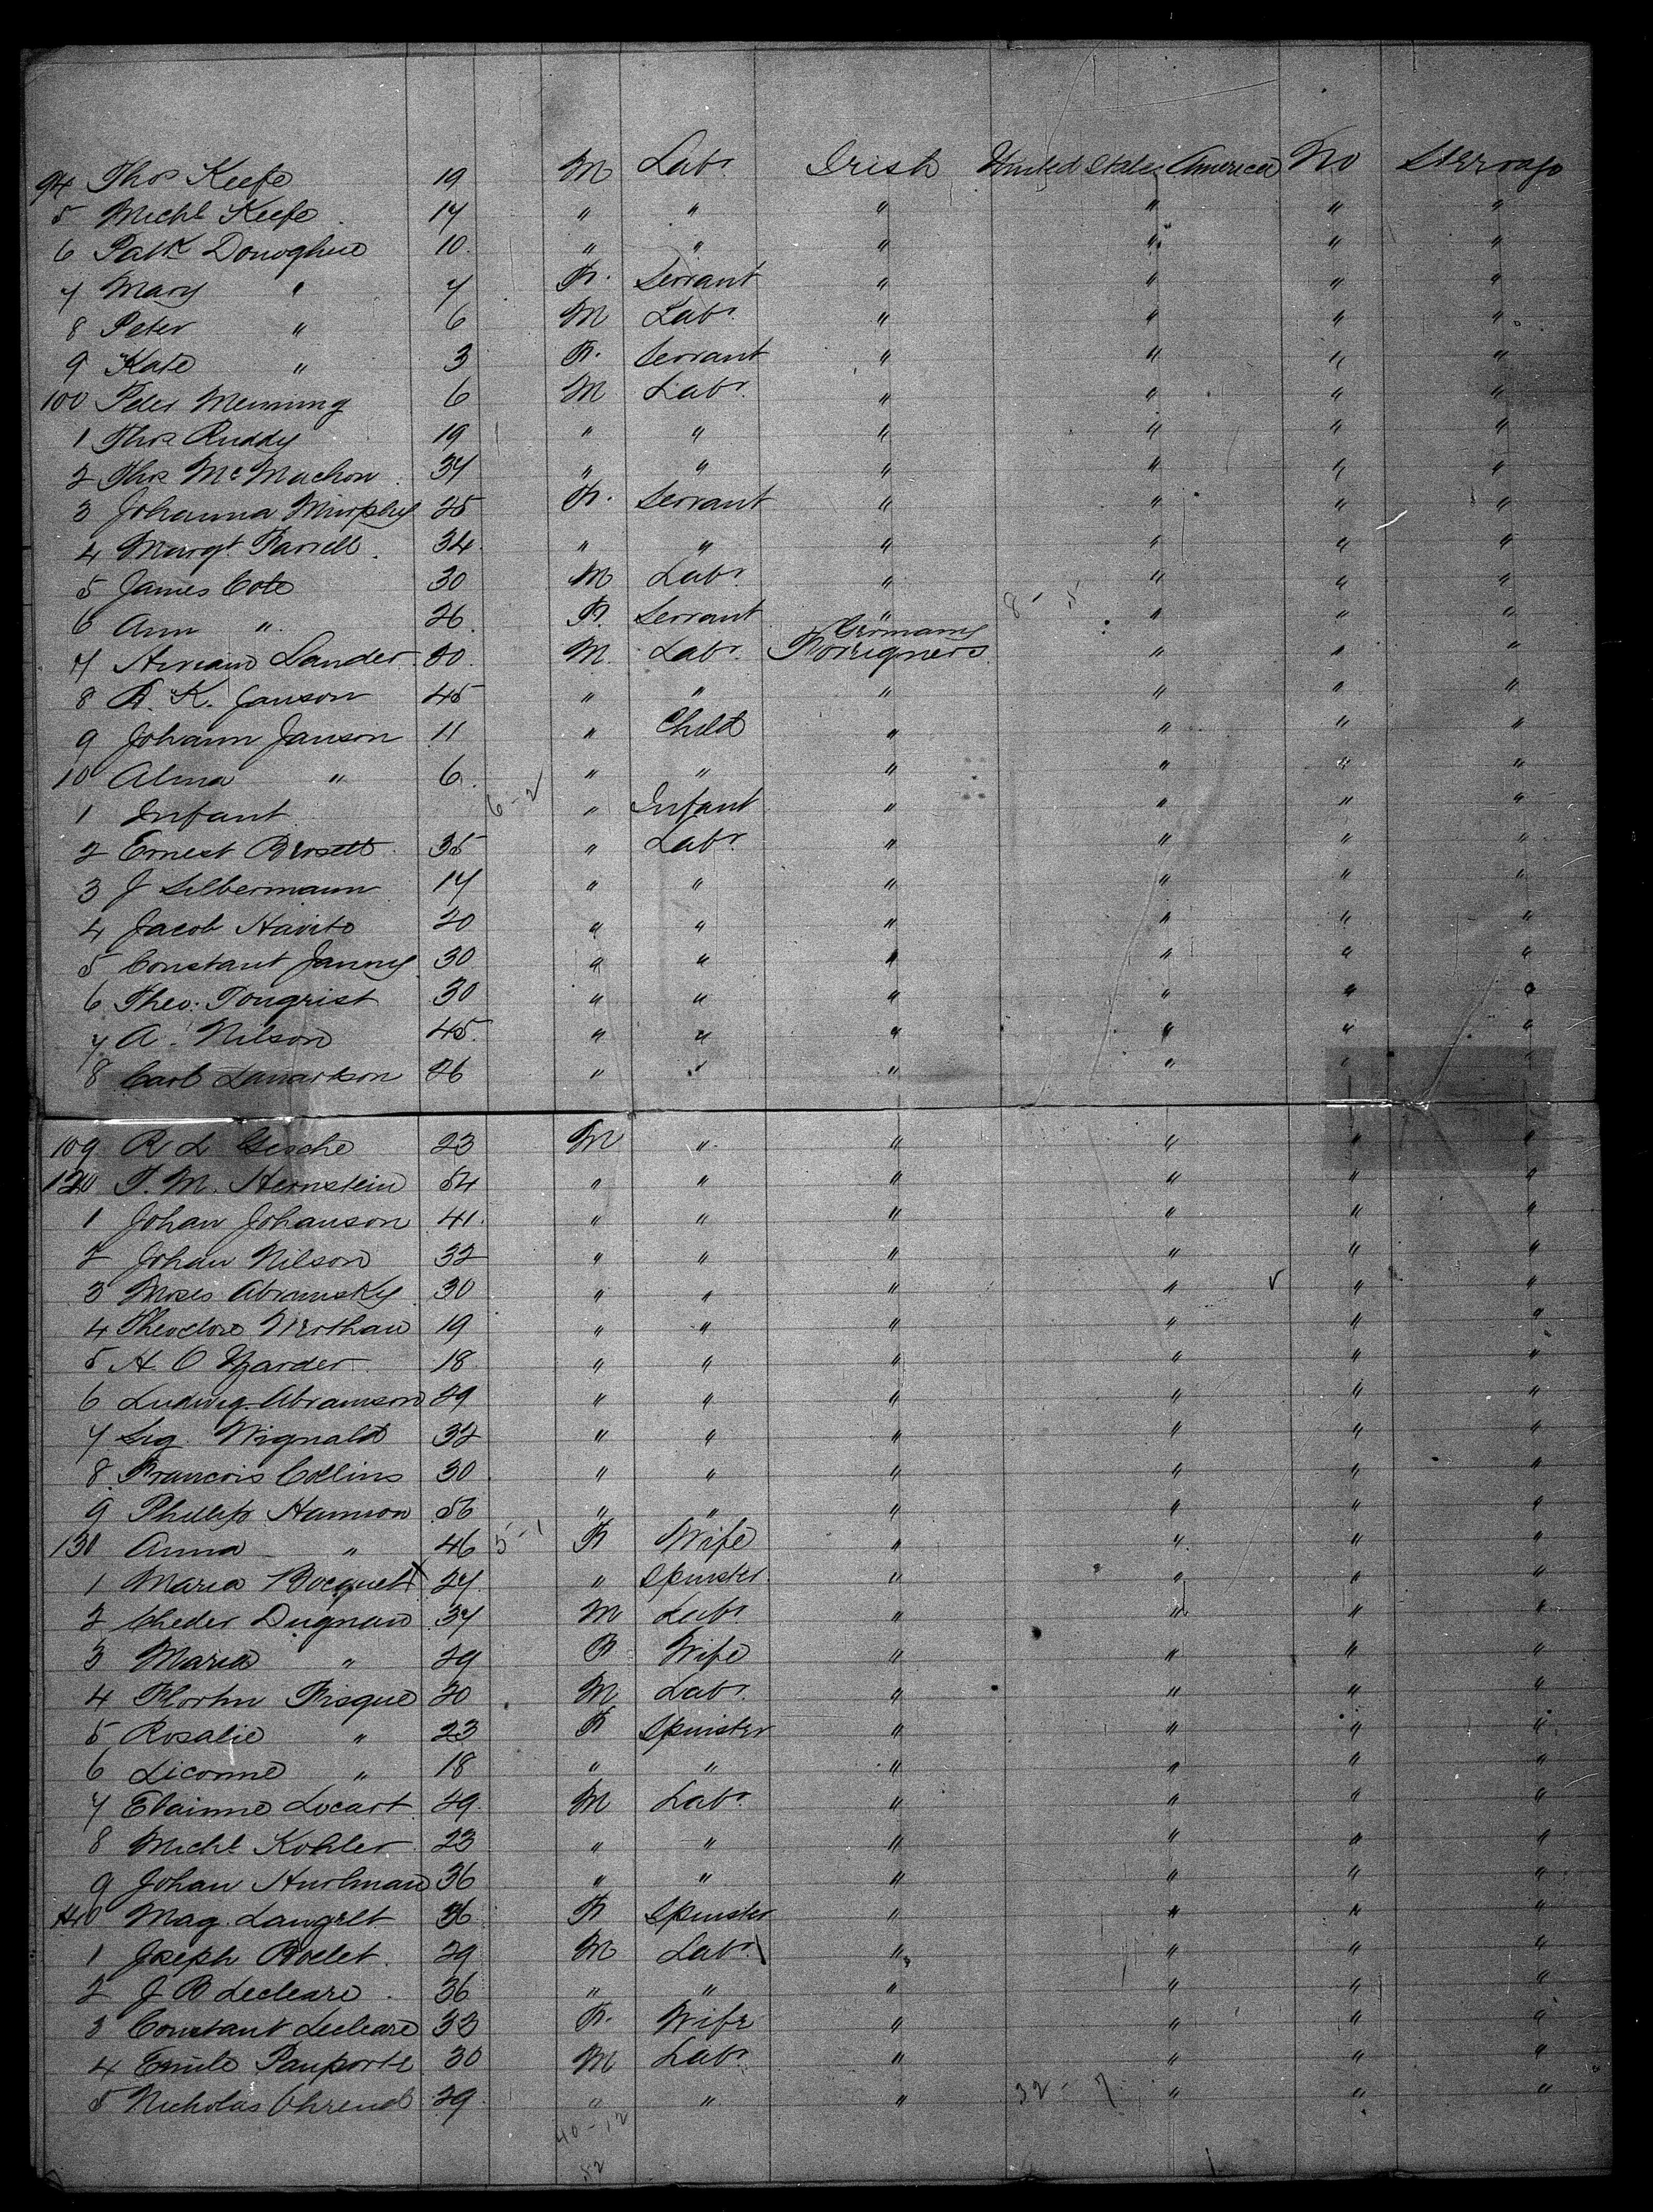 94 Thos Keefe 19 M Labr Irish United States America No Steerage
5 Michl Keefe 17 " " " " " "
6 Patk Donoghue 10 " " " " " "
7 Mary " 7 F. Servant " " " "
8 Peter " 6 M Labr " " " "
9 Kate " 3 F. Servant " " " "
100 Peter Menning 6 M Labr " " " "
1 Thos Ruddy 19 " " " " " "
2 Thos McMachon 37 " " " " " "
3 Johanna Murphy 25 F. Servant " " " "
4 Margt Farrell 34 " " " " " "
5 James Cote 30 M Labr " " " "
6 Ann " 26 F. Servant " 8 - 5 " " "
Germany
7 Lander M Labr Foreigners " " "
8 B. K. Janson 45 " " " " " "
9 Johann Janson 11 " Child " " " "
10 Alma " 6 " " " " " "
1 Infant 6 - 2 " Infant " " " "
2 Ernest 35 " Labr " " " "
3 J Silbermann 17 " " " " " "
4 Jacob 20 " " " " " "
5 Constant Janny 30 " " " " " "
6 Theo. Tongrist 30 " " " " " "
7 A. Nilson 45 " " " " " "
8 Carl 26 " " " " " "
109 R L 23 M " " " " "
120 F. M. Hernstein 54 " " " " " "
1 Johan Johanson 41 " " " " " "
2 Johan Nilson 32 " " " " " "
3 Moses Abramsky 30 " " " " " "
4 Theodore 19 " " " " " "
5 H. O 18 " " " " " "
6 Ludwig Abramson 29 " " " " " "
7 Sig. Wignald 32 " " " " " "
8 Francois Collins 30 " " " " " "
9 Phillip Hannon 56 " " " " " "
130 Anna " 46 5 - 1 F Wife " " " "
1 Maria Bocquet 27 " Spinster " " " "
2 Cheder Dugnan 37 M Labr " " " "
3 Maria " 29 F Wife " " " "
4 Frisque 20 M Labr " " " "
5 Rosalie " 23 F Spinster " " " "
6 Liconne " 18 " " " " " "
7 Etainne Locart 29 M Labr " " " "
8 Michl Kohler 23 " " " " " "
9 Johan Hurlman 36 " " " " " "
140 Mag. Langrlt 36 F Spinster " " " "
1 Joseph Bollet 29 M Labr " " " "
2 J B Lecleare 36 " " " " " "
3 Constant Lecleare 33 F. Wife " " " "
4 Emile Pauporte 30 M Labr " " " "
5 Nicholas 29 " " " 32 - 7 " " "
40 - 12
52